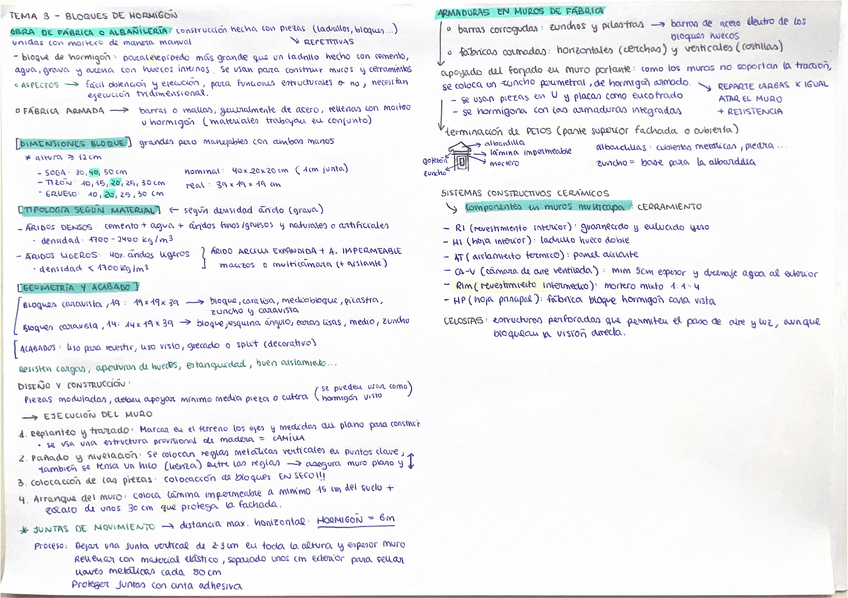 TEMA 3 - BLOQUES DE HORMIGÓN
OBRA DE FÁBRICA O ALBAÑILERÍA: construcción hecha con piezas (ladrillos, bloques...)
unidas con mortero de manera manual ↘ REPETITIVAS
- bloque de hormigón: paralelepípedo más grande que un ladrillo hecho con cemento,
agua, grava y arena con huecos internos. Se usan para construir muros y cerramientos
* ASPECTOS → fácil obtención y ejecución, para funciones estructurales o no, necesitan
ejecución tridimensional.
o FÁBRICA ARMADA → barras o mallas, generalmente de acero, rellenas con mortero
u hormigón (materiales trabajan en conjunto)
[DIMENSIONES BLOQUE] grandes pero manejables con ambas manos
* altura ≥ 12cm
- SOGA: 30, 40, 50cm
nominal: 40x20x20 cm (1cm junta)
- TIZÓN: 10, 15, 20, 25, 30 cm
real: 39 x 19 x 19 cm
- GRUESO: 10, 20, 25, 30 cm
[TIPOLOGÍA SEGÚN MATERIAL] ← según densidad árido (grava)
- ÁRIDOS DENSOS cemento + agua + áridos finos/gruesos y naturales o artificiales
· densidad: 1700-2400 kg/m³
- ÁRIDOS LIGEROS: 40% áridos ligeros } ÁRIDO ARCILLA EXPANDIDA + A. IMPERMEABLE
· densidad < 1700 kg/m³ macizos o multicámara (+ aislante)
[GEOMETRÍA Y ACABADO]
Bloques caravista, 19: 19x19x39 → bloque, cara lisa, mediobloque, pilastra,
zuncho y caravista
Bloques caravista, 14: 14x19x39 → bloque, esquina ángulo, caras lisas, medio, zuncho
[ACABADOS: liso para revestir, liso visto, grecado o split (decorativo)
Resisten cargas, aperturas de huecos, estanquidad, buen aislamiento...
DISEÑO Y CONSTRUCCIÓN:
Piezas moduladas, deben apoyar mínimo media pieza o cutera (se pueden usar como hormigón visto)
→ EJECUCIÓN DEL MURO
1. Replanteo y trazado: Marcar en el terreno los ejes y medidas del plano para construir
· se usa una estructura provisional de madera = CAMILLA
2. Pañado y nivelación: Se colocan reglas metálicas verticales en puntos clave,
también se tensa un hilo (lienza) entre las reglas → asegura muro plano y ↕
3. colocación de las piezas: colocación de bloques EN SECO!!!
4. Arranque del muro: coloca lámina impermeable a mínimo 15 cm del suelo +
zócalo de unos 30 cm que protega la fachada.
* JUNTAS DE MOVIMIENTO → distancia max. horizontal: HORMIGÓN = 6m
Proceso: Dejar una junta vertical de 2-3cm en toda la altura y espesor muro
Rellenar con material elástico, separado unos cm exterior para sellar
llaves metálicas cada 80cm
Proteger juntas con cinta adhesiva
ARMADURAS EN MUROS DE FÁBRICA
o barras corrugadas: zunchos y pilastras → barras de acero dentro de los
bloques huecos
o fábricas armadas: horizontales (cerchas) y verticales (costillas)
apoyado del forjado en muro portante: como los muros no soportan la tracción,
se coloca un zuncho perimetral, de hormigón armado. ↘ REPARTE CARGAS X IGUAL
- se usan piezas en U y placas como encofrado
ATAR EL MURO
- se hormigona con las armaduras integradas
+ RESISTENCIA
terminación de PETOS (parte superior fachada o cubierta)
albardilla
lámina impermeable
mortero
goterón
zuncho
albardillas: cubiertas metálicas, piedra...
zuncho = base para la albardilla
SISTEMAS CONSTRUCTIVOS CERÁMICOS
↳ Componentes en muros multicapa: CERRAMIENTO
- RI (revestimiento interior): guarnecido y enlucido yeso
- HI (hoja interior): ladrillo hueco doble
- AT (aislamiento térmico): panel aislante
- Ca-V (cámara de aire ventilada): mín 3cm espesor y drenaje agua al exterior
- Rim (revestimiento intermedio): mortero mixto 1:1:4
- HP (hoja principal): fábrica bloque hormigón cara vista
CELOSÍAS: estructuras perforadas que permiten el paso de aire y luz, aunque
bloquean la visión directa.